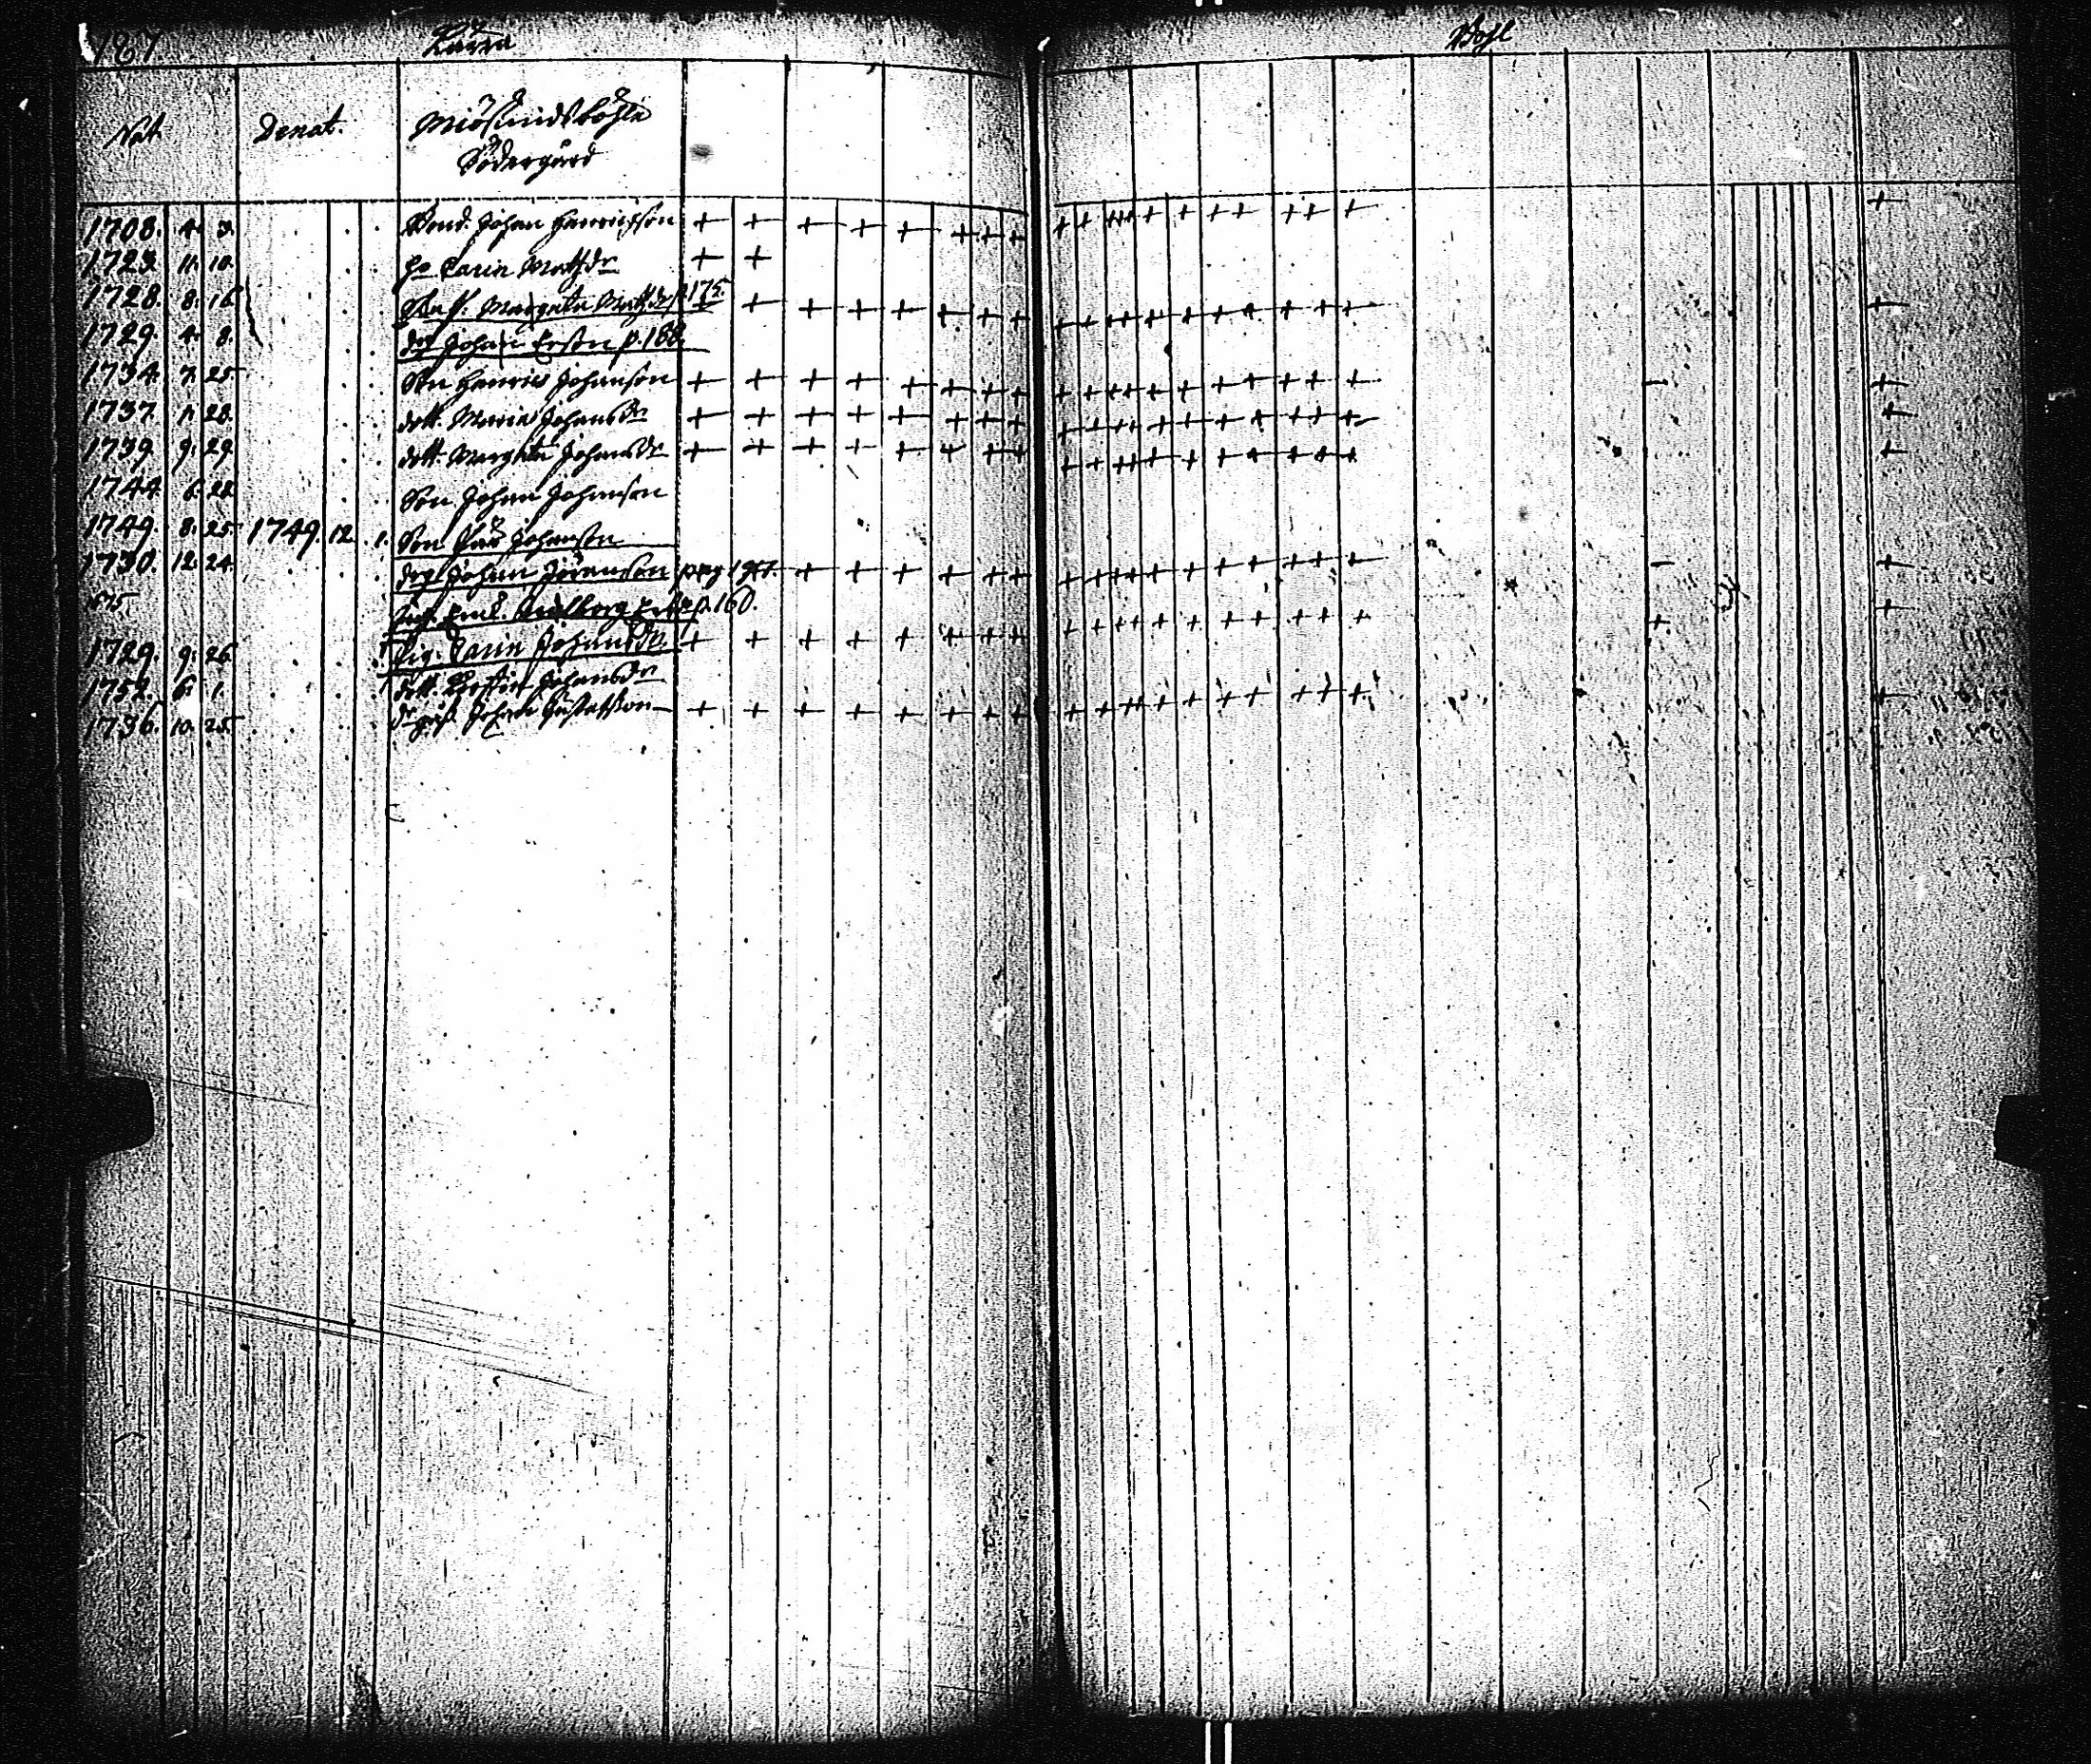 187. Bohl
Nat. Denat. Miösundsböhle
Södergård
1708. 4. 3. Bond. Johan Henricsson
1723. 11. 10. Ho Carin Matsdr
1728. 8. 16. Margeta Matsdr p 175.
1729. 4. 8. drg Johan Ersson p. 188.
1734. 7. 25 Son Henric Johanson
1737. 1. 28. dott. Maria Johansdr
1739. 9. 29. dott. Margeta Johansdr
1744. 6. 28. Son Johan Johanson
1749. 8. 25. 1749. 12. 1. Son Johanson
1730. 12. 24. drg Johan Jöranson pag
p. 160.
1729. 9. 26. Pig. Carin Johansdr.
1752. 6. 1. dott. Johansdr
1736. 10. 25. Johan Gustafsson